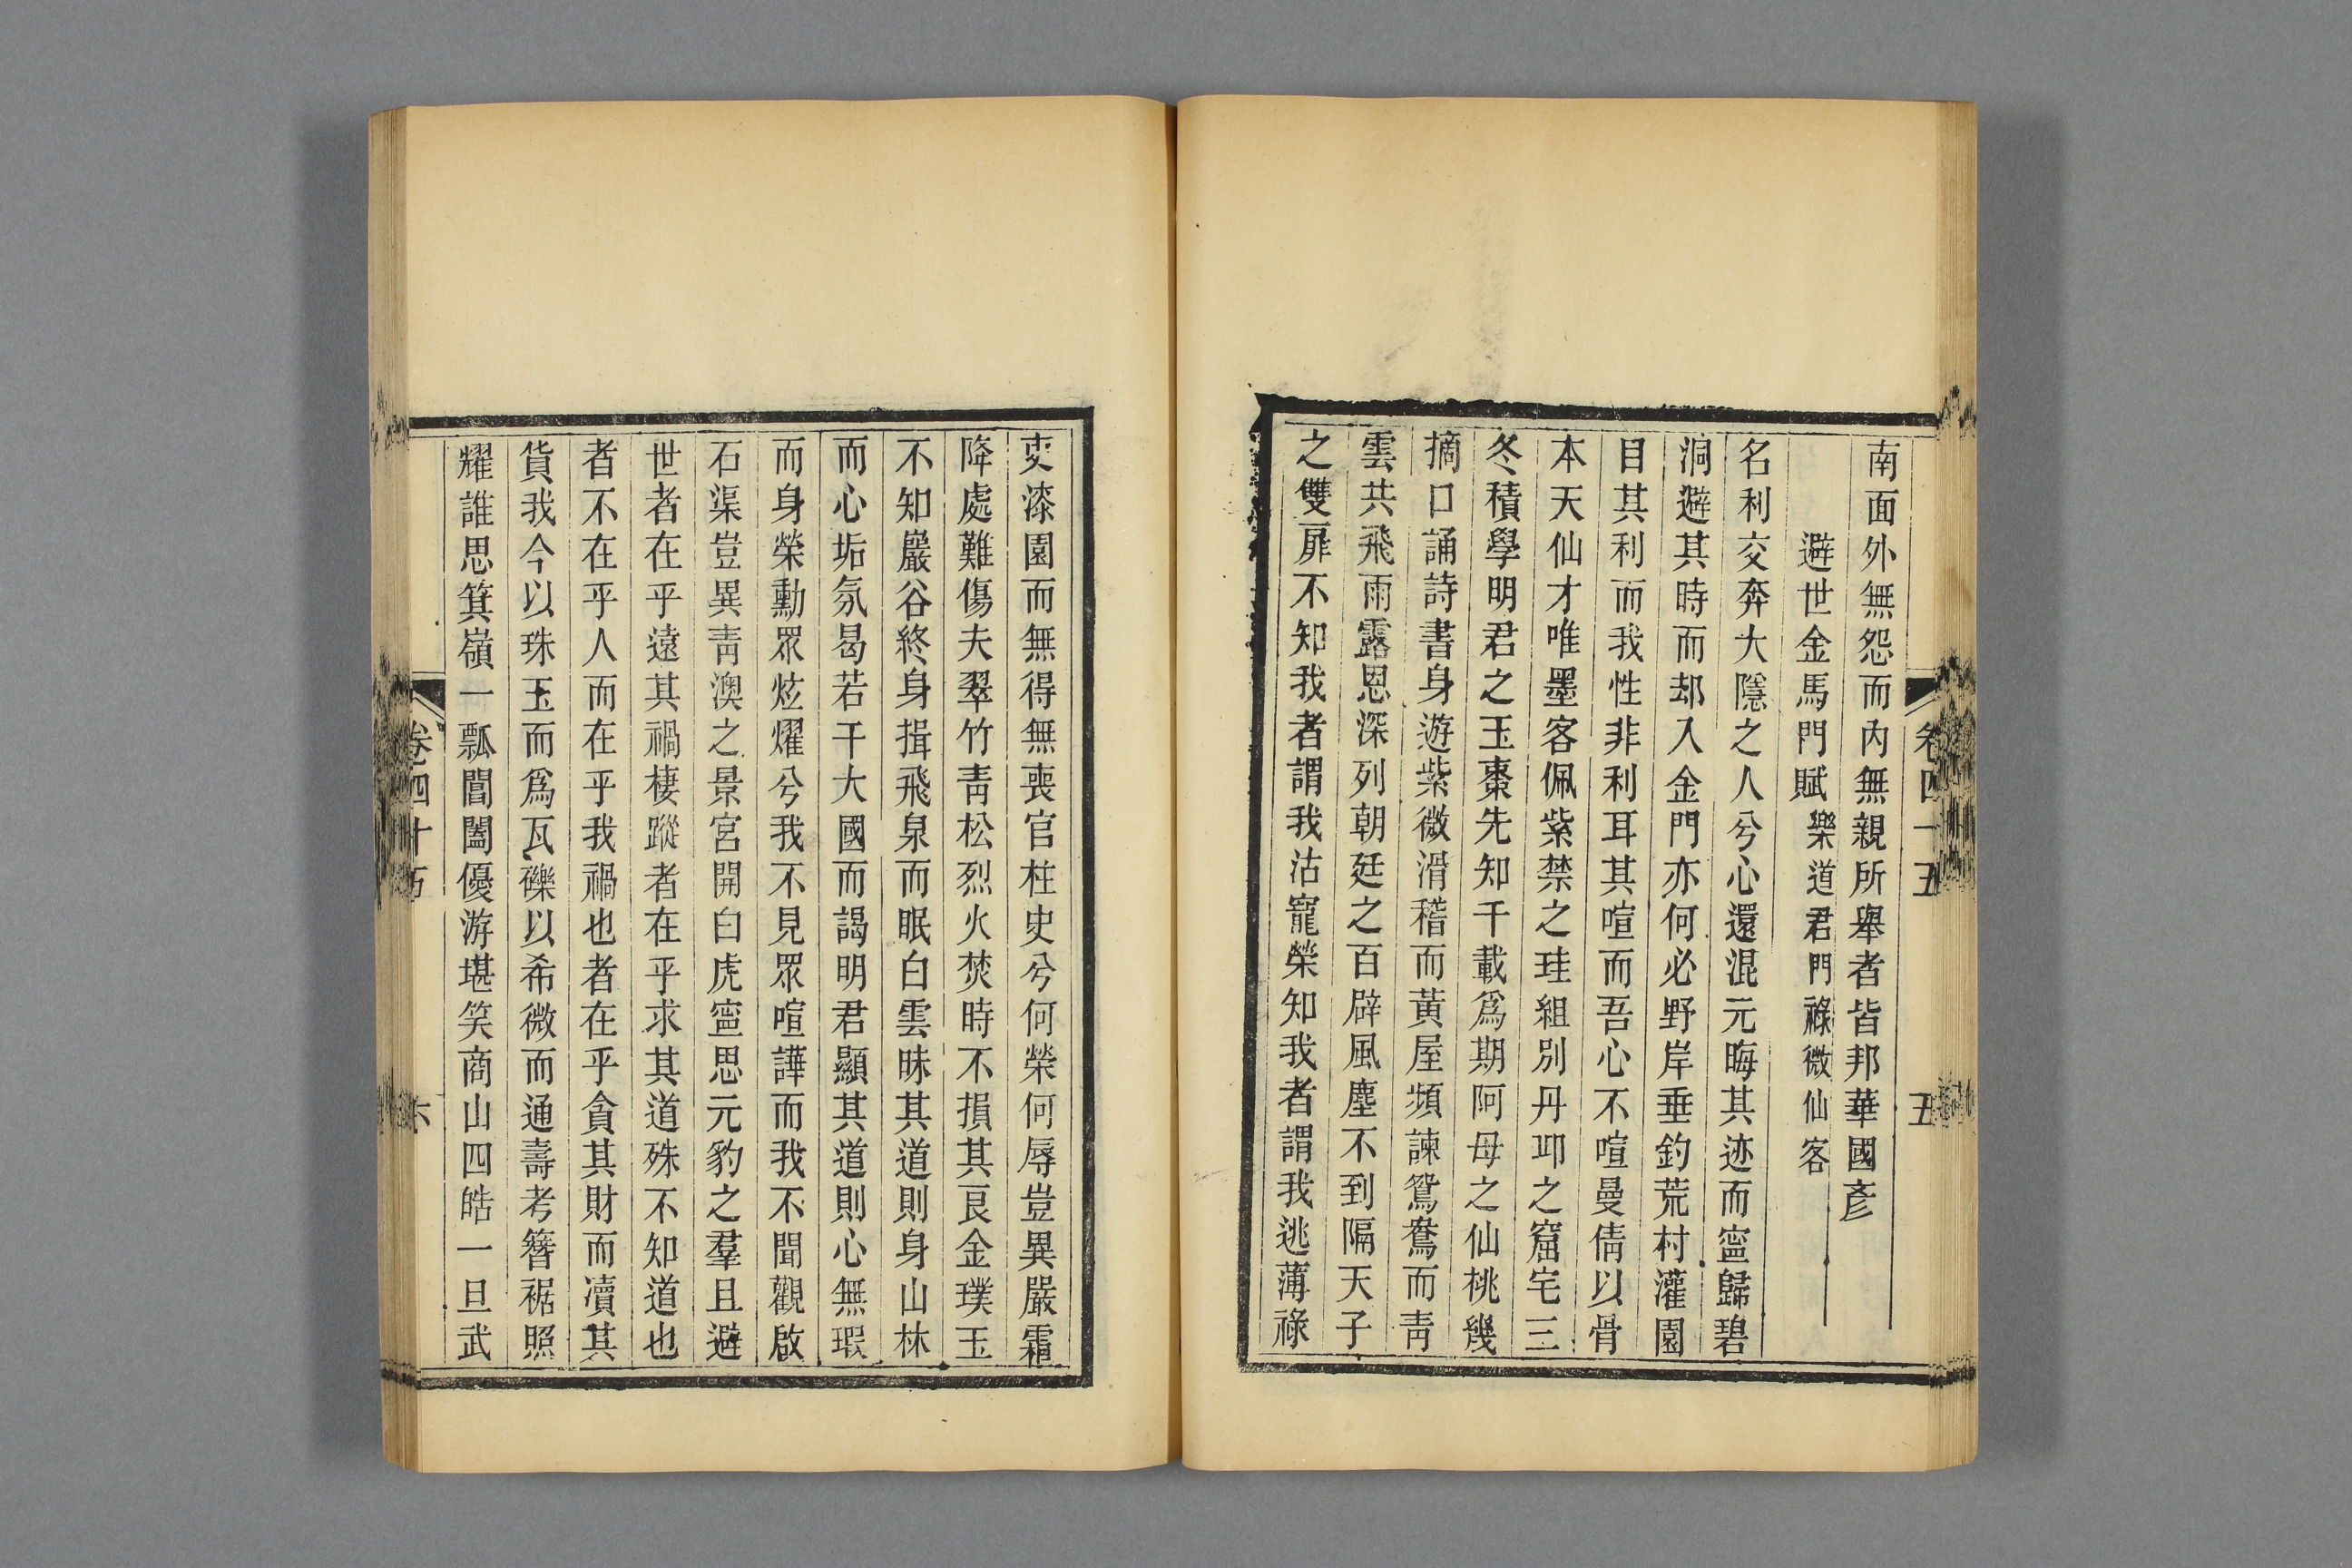 南面外無怨而內無親所舉者皆邦華國彥
避世金馬門賦 樂道君門祿微仙客
名利交奔大隱之人兮心還混元晦其迹而寍歸碧
洞避其時而却入金門亦何必野岸垂釣荒村灌園
目其利而我性非利耳其喧而吾心不喧曼倩以骨
本天仙才唯墨客佩紫禁之珪組別丹邱之窟宅三
冬積學明君之玉棗先知千載爲期阿母之仙桃幾
摘口誦詩書身遊紫微滑稽而黃屋頻諫鴛鴦而靑
雲共飛雨露恩深列朝廷之百辟風塵不到隔天子
之雙扉不知我者謂我沽寵榮知我者謂我逃薄祿
卷四十五
五
吏漆園而無得無喪官柱史兮何榮何辱豈異嚴霜
降處難傷夫翠竹靑松烈火焚時不損其良金璞玉
不知巖谷終身揖飛泉而眠白雲昧其道則身山林
而心垢氛曷若干大國而謁明君顯其道則心無瑕
而身榮勳眾炫燿兮我不見眾喧譁而我不聞觀啟
石渠豈異靑澳之景宮開白虎寍思元豹之羣且避
世者在乎遠其禍棲蹤者在乎求其道殊不知道也
者不在乎人而在乎我禍也者在乎貪其財而凟其
貨我今以珠玉而爲瓦礫以希微而通壽考簪裾照
耀誰思箕嶺一瓢閶闔優游堪笑商山四皓一旦武
卷四十五
六